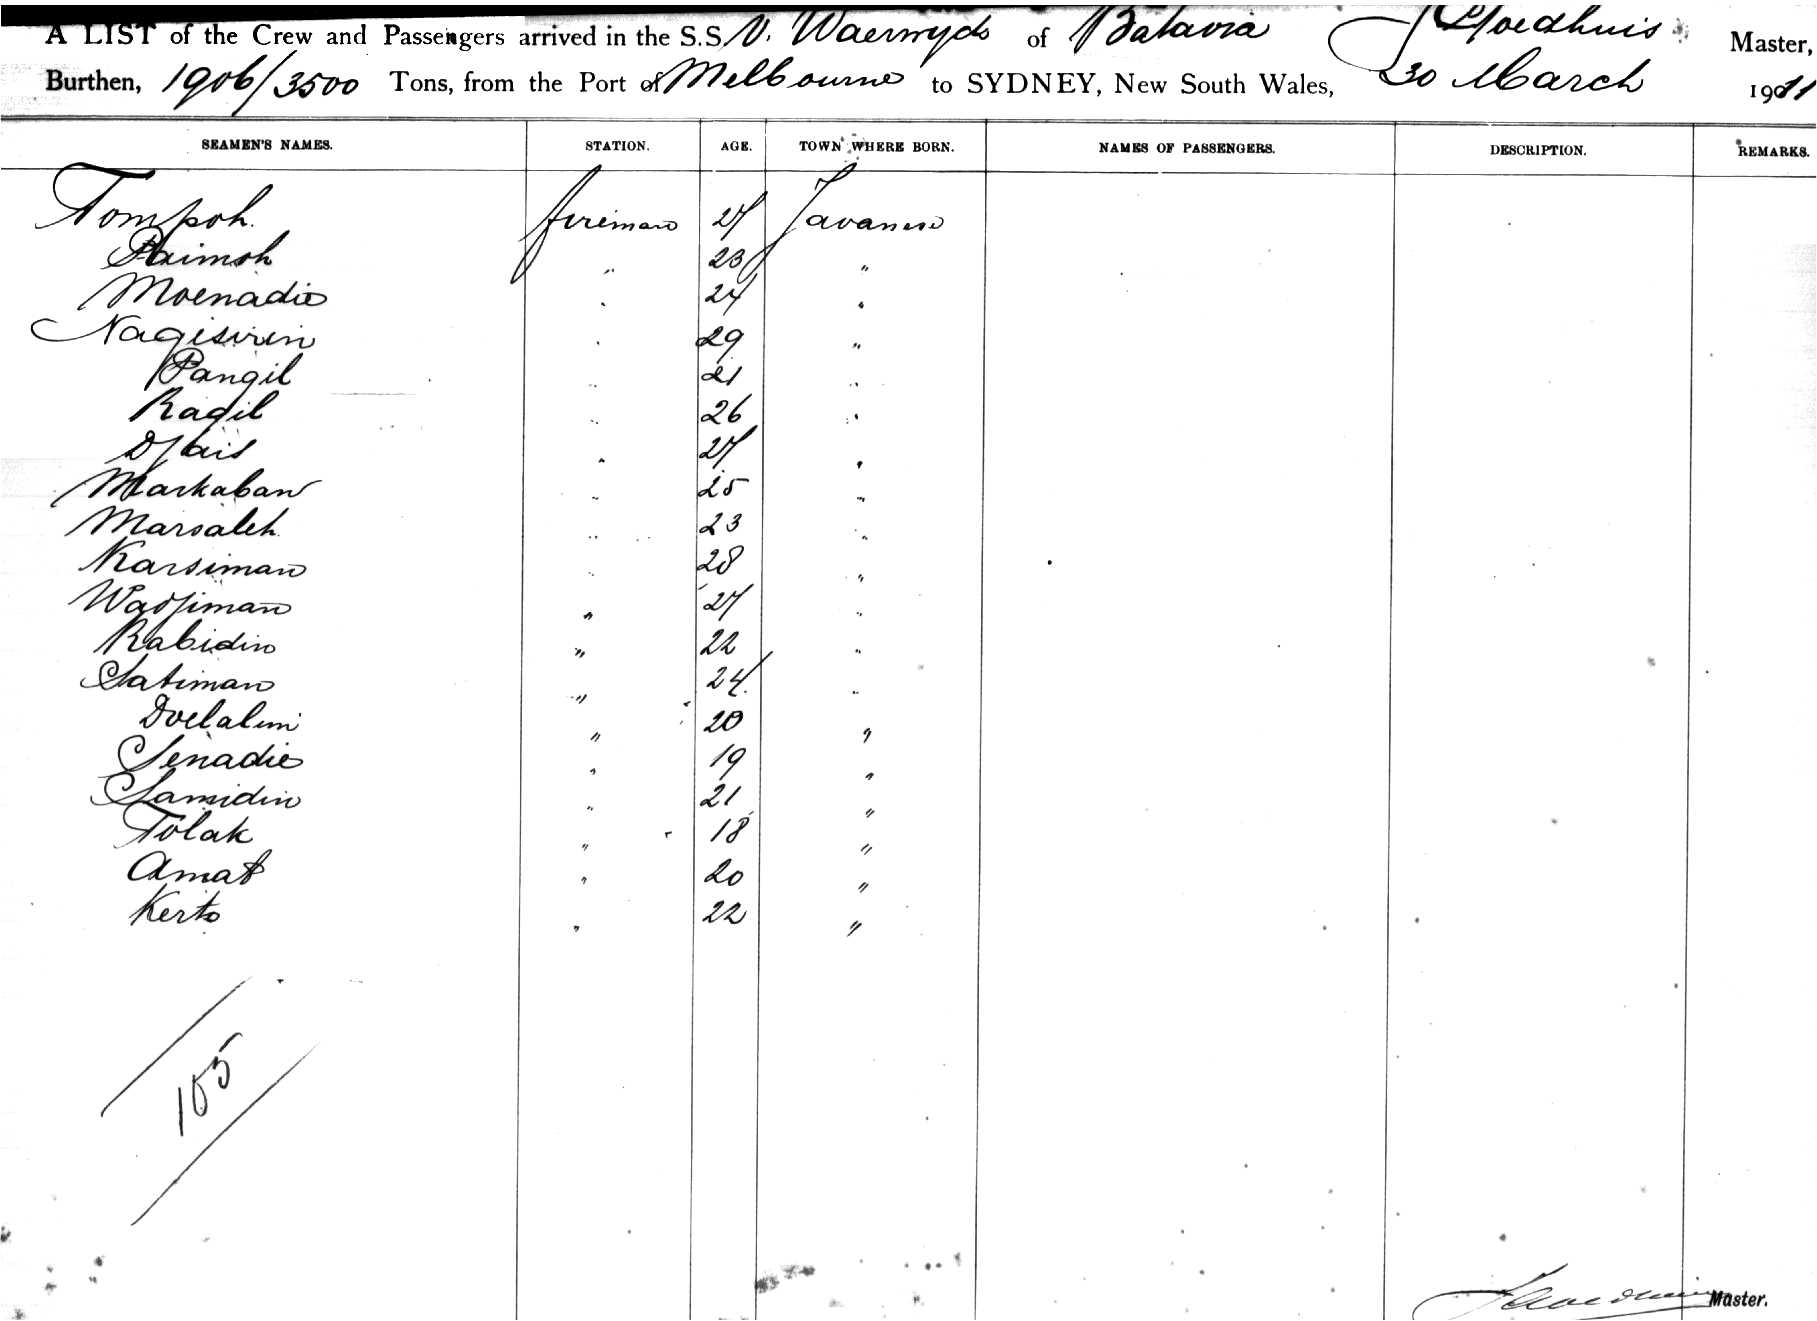 A LIST of the Crew and Passengers arrived in the S.S. V. Waerwyck of Batavia J Goedhuis Master,
Burthen, 1906/3500 Tons, from the Port of Melbourne to SYDNEY, New South Wales, 30 March 1911
SEAMEN'S NAMES. STATION. AGE. TOWN WHERE BORN. NAMES OF PASSENGERS. DESCRIPTION. REMARKS.
Tompoh. fireman 27 Javanese
Paimoh " 23 "
Moenadie " 24 "
29 "
Pangil " 21 "
Ragil " 26 "
Djais " 27 "
Markaban " 25 "
Marsaleh " 23 "
Karsiman " 28 "
Wadjiman " 27 "
Rabidin " 22 "
Satiman " 24 "
Doelalim " 20 "
Senadie " 19 "
Samidin " 21 "
Tolak " 18 "
Amat " 20 "
Kerto " 22 "
105
Master.